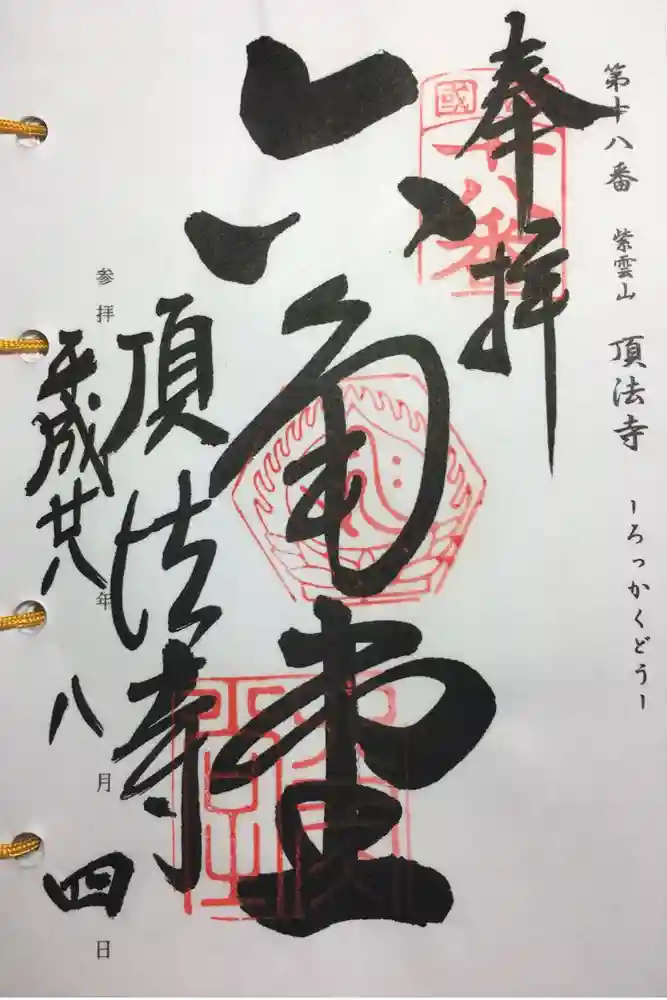 第十八番 紫雲山 頂法寺 -ろっかくどう-
奉拝
六角堂
頂法寺
参拝 平成廿八年 八月 四日
十八番